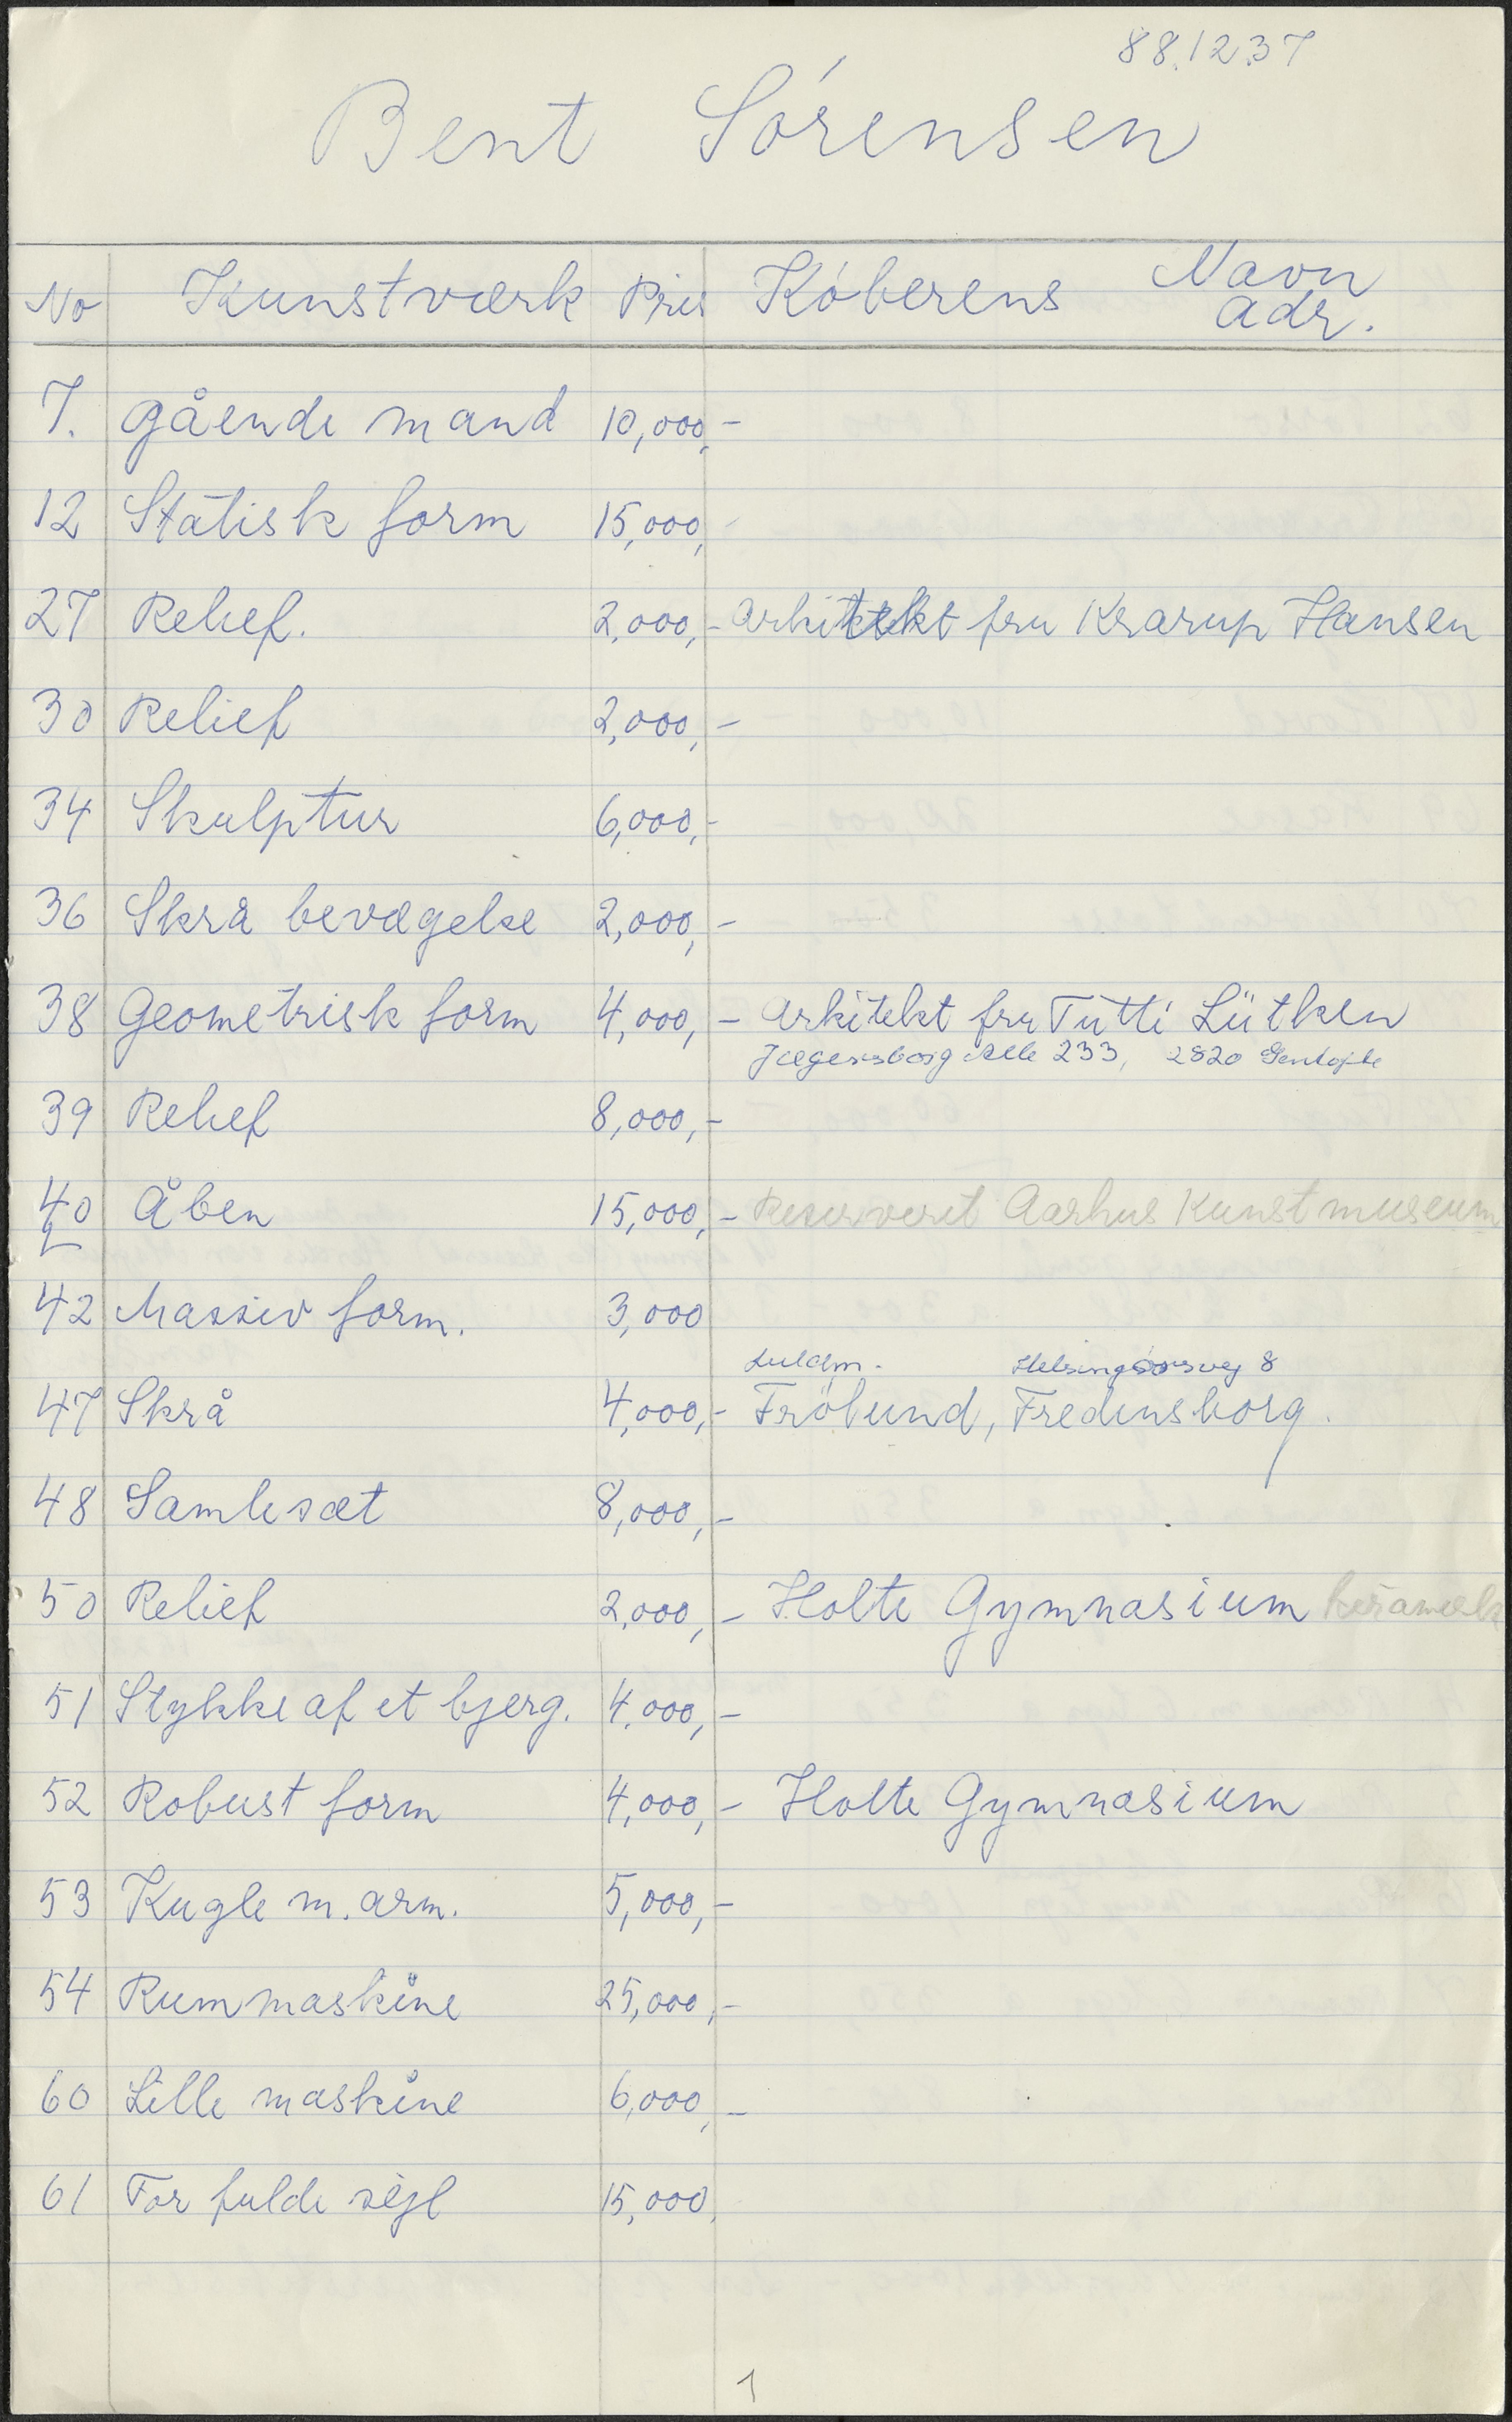 88.12.37
Bent Sórensen
No Kunstværk Pris Kóberens Navn
Adr.
7. gående mand 10,000,-
12 Statisk form 15,000,-
27 Relief. 2,000,- Arkitekt fru Krarup Hansen
30 Relief 2,000,-
34 Skulptur 6,000,-
36 Skrå bevægelse 2,000,-
38 Geometrisk form 4,000,- Arkitekt fru Tutti Lütken
Jægersborg Alle 233, 2820 Gentofte
39 Relief 8,000,-
40 Åben 15,000,- Reserveret Aarhus Kunstmuseum
42 Massiv form. 3,000
Helsingørsvej 8
47 Skrå 4,000,- Frölund, Fredensborg.
48 Samlesæt 8,000,-
50 Relief 2,000,- Holte Gymnasium keramik
51 Stykke af et bjerg. 4,000,-
52 Robust form 4,000,- Holte Gymnasium
53 Kugle m. arm. 5,000,-
54 Rummaskine 25,000,-
60 Lille maskine 6,000,-
61 For fulde sejl 15,000,
1